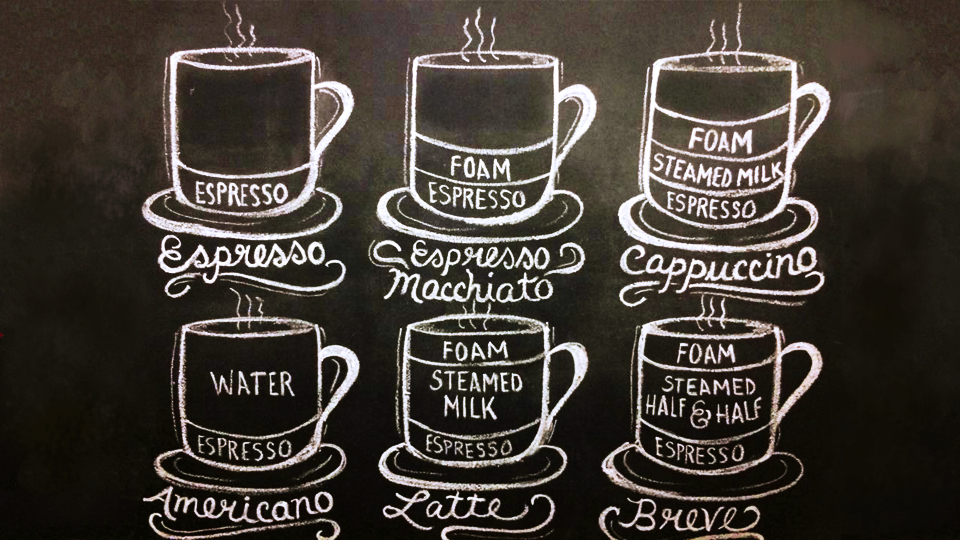 ESPRESSO
Espresso
FOAM
ESPRESSO
Espresso
Macchiato
FOAM
STEAMED MILK
ESPRESSO
Cappuccino
WATER
ESPRESSO
Americano
FOAM
STEAMED
MILK
ESPRESSO
Latte
FOAM
STEAMED
HALF & HALF
ESPRESSO
Breve